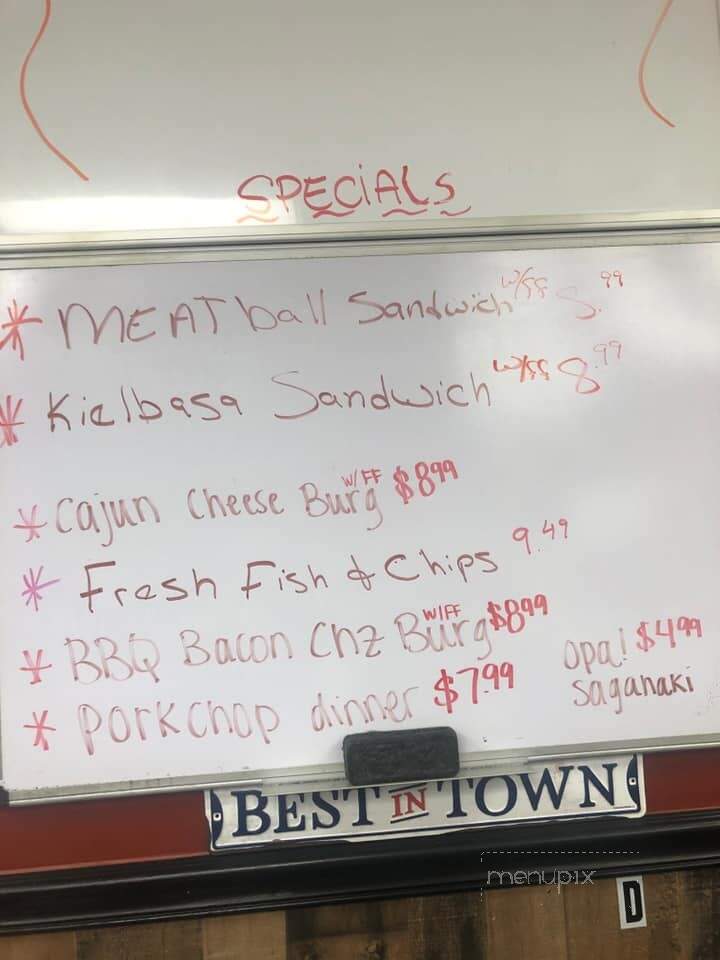 SPECIALS
* MEATball Sandwich w/ss 8.99
* Kielbasa Sandwich w/ss 8.99
* Cajun Cheese Burg w/FF $8.99
* Fresh Fish & Chips 9.49
* BBQ Bacon Chz Burg W/FF $8.99
* Porkchop dinner $7.99
Opa! $4.99
Saganaki
BEST IN TOWN
menupix
D